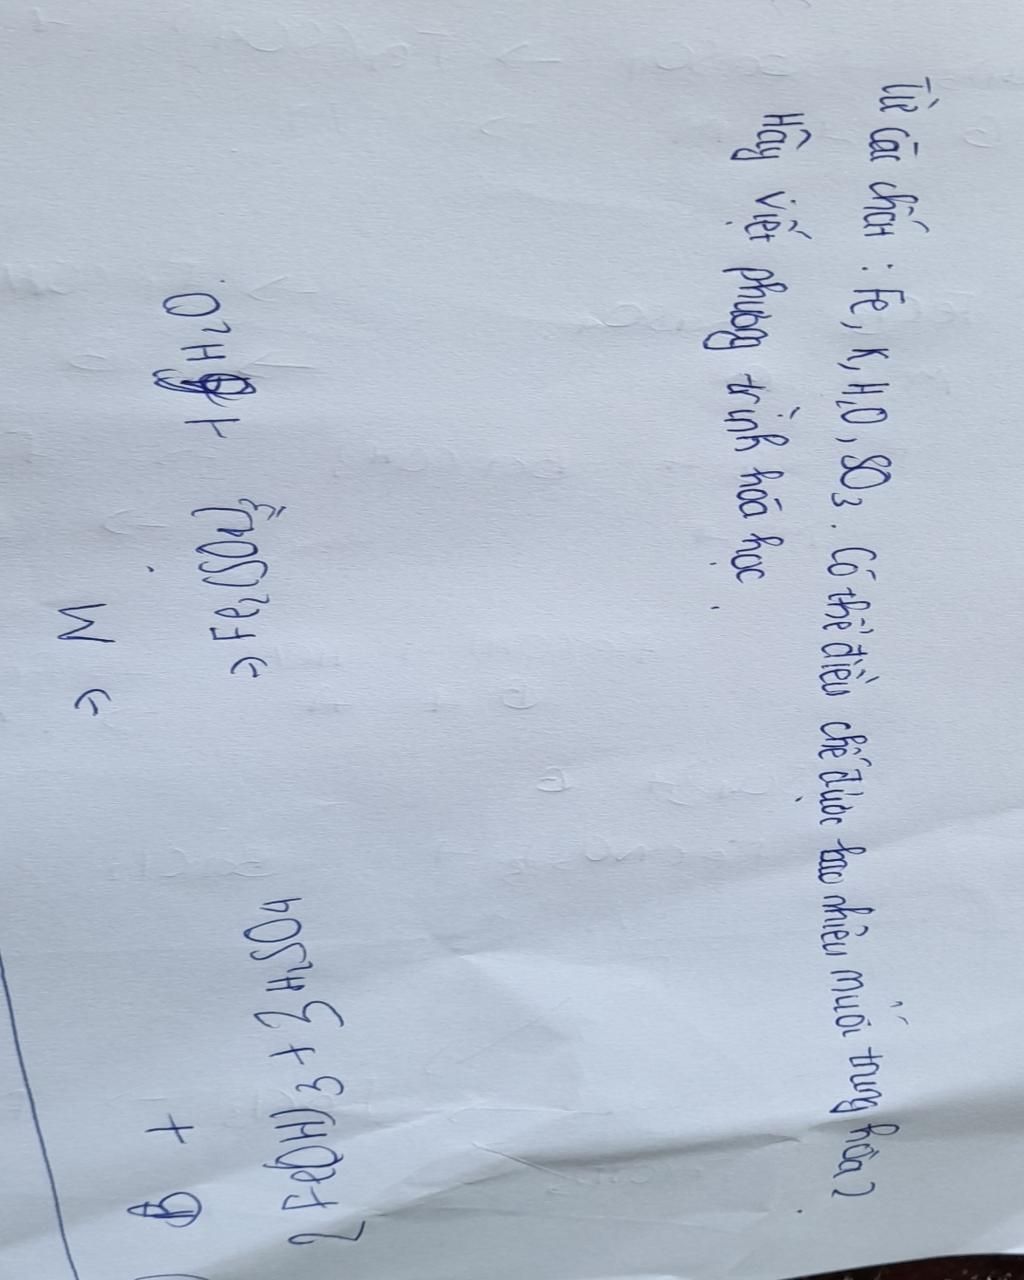 Từ các chất : Fe, K, H₂O, SO₃. Có thể điều chế được bao nhiêu muối trung hòa?
Hãy viết phương trình hóa học
2 Fe(OH)3 + 3 H₂SO4
→ Fe₂(SO4)3 + H₂O
+
→ M